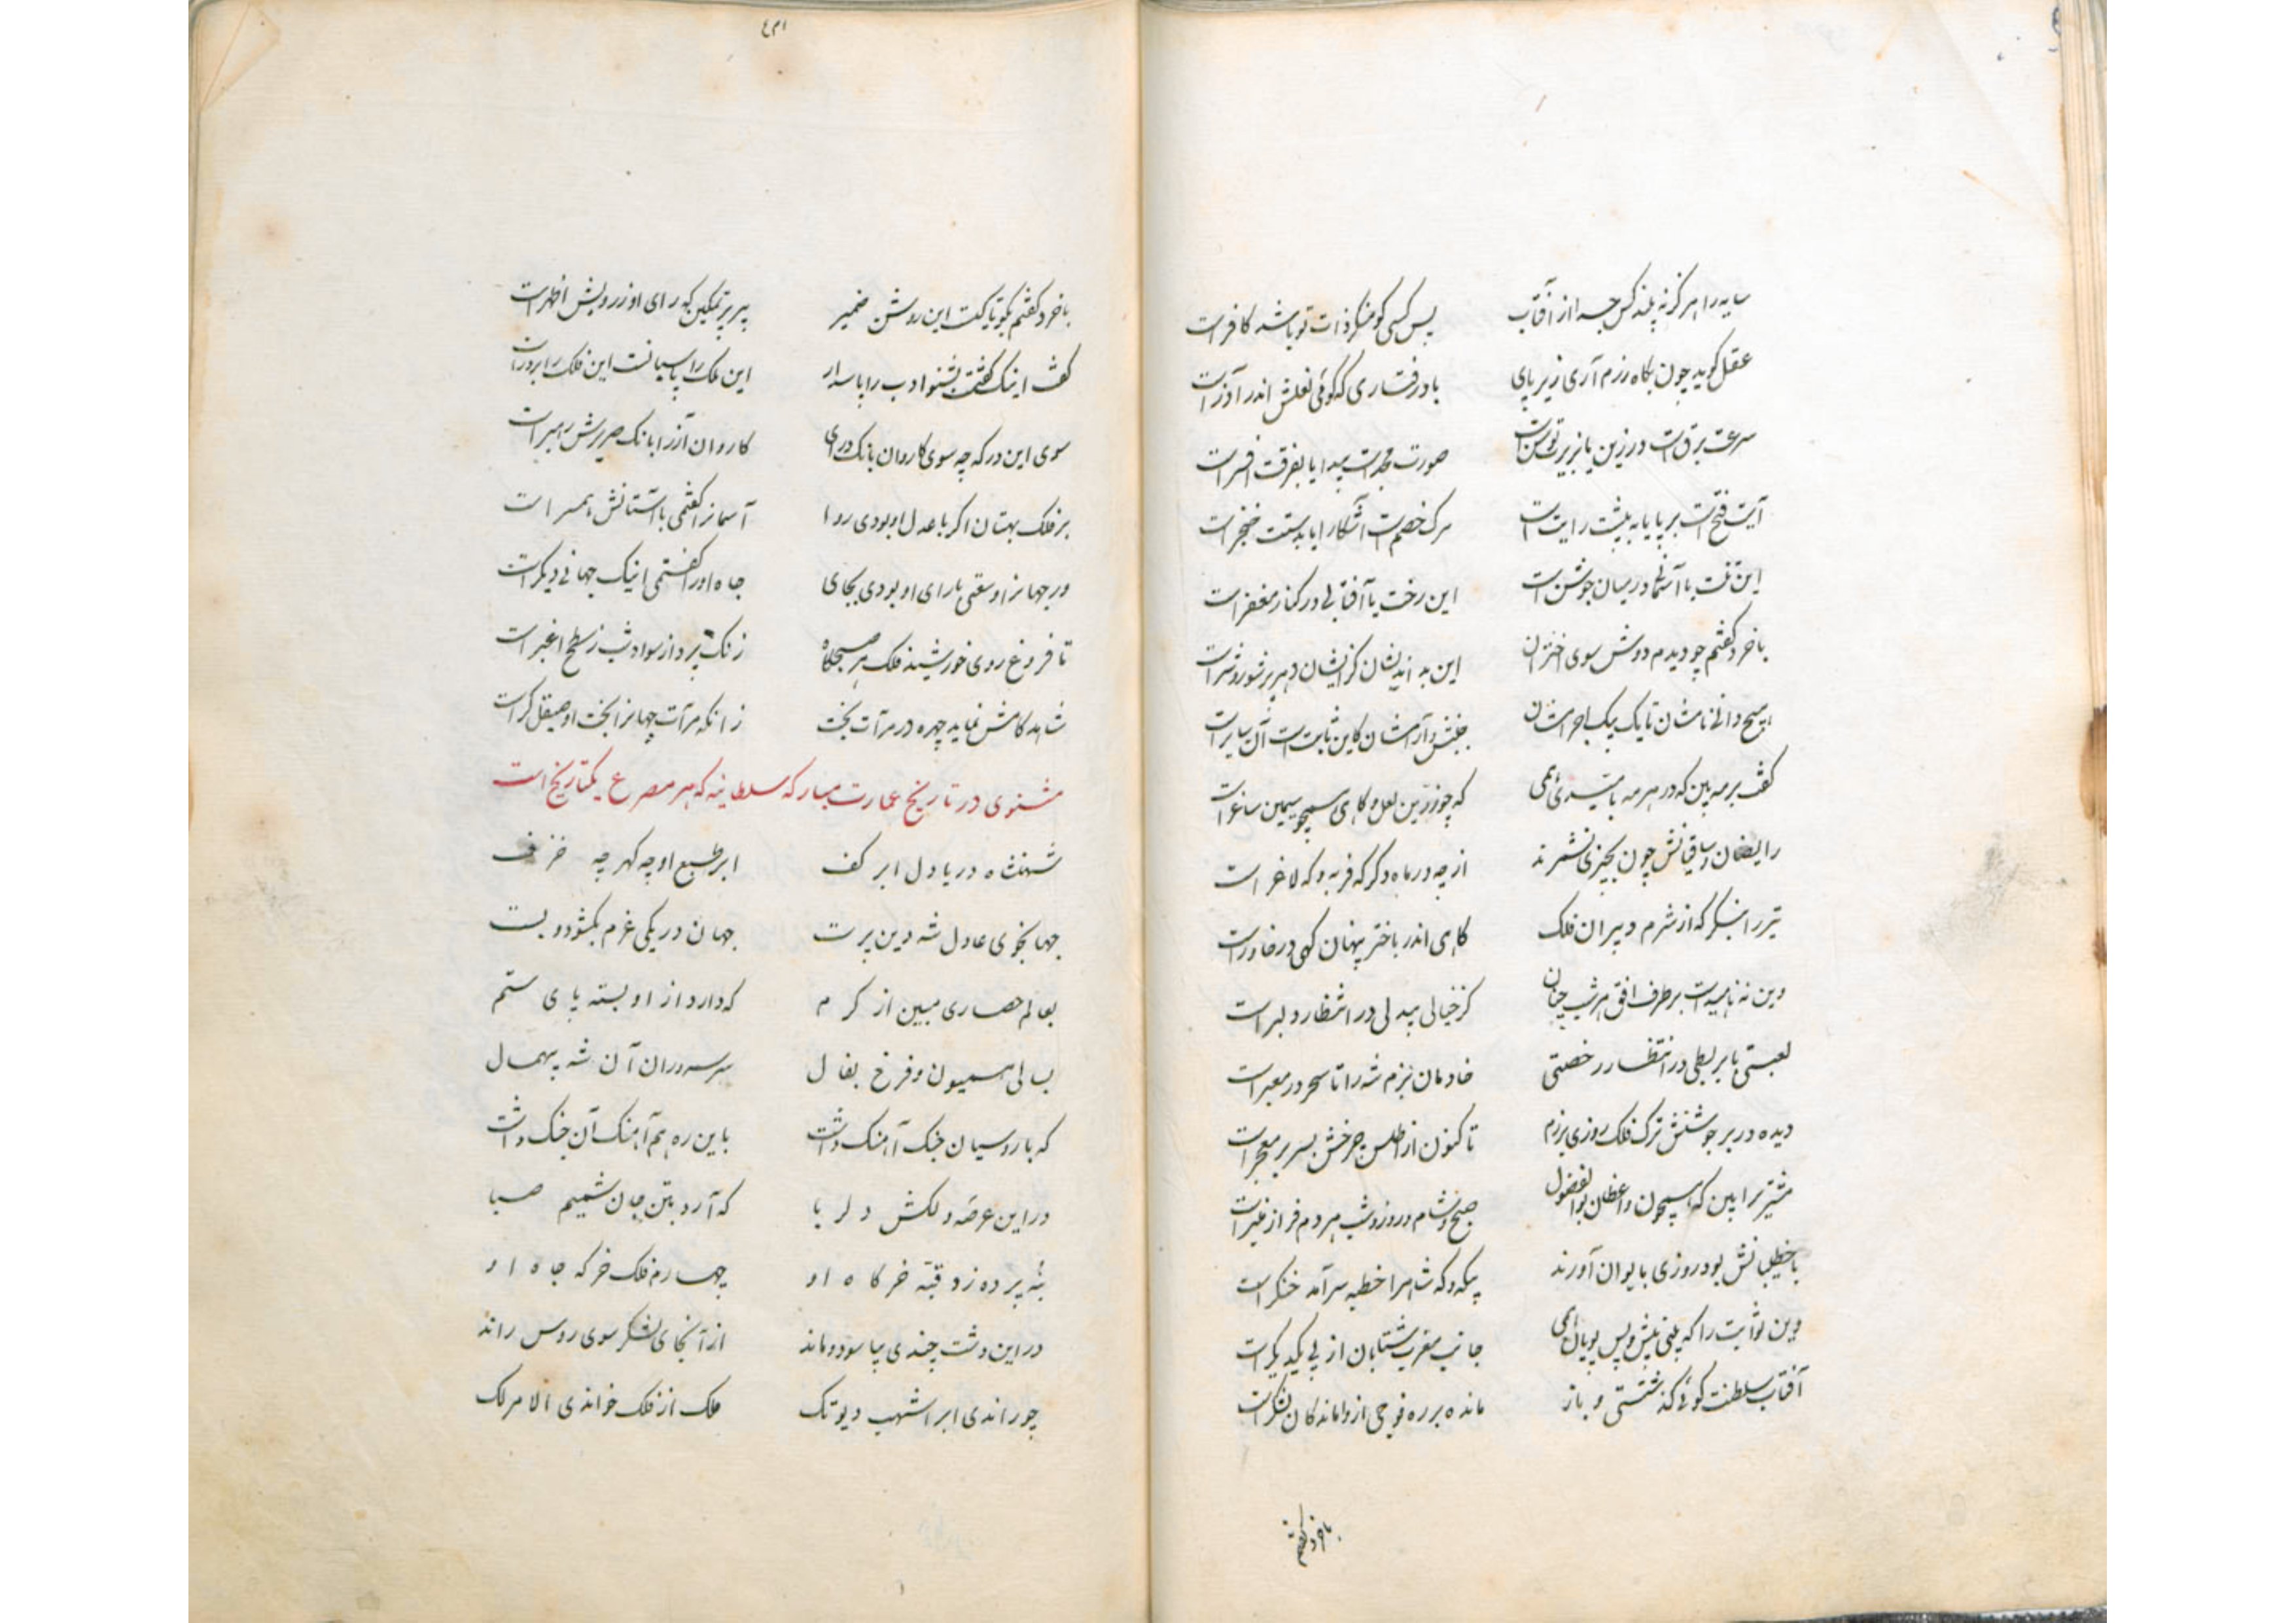 سایه را هرگز نه بیند کس جدا از آفتاب پس کسی کو منکر ذات تو باشد کافرست
عقل گوید چون بگاه رزم آری زیر پای بادرفتاری که گوئی نعلش اندر آذرست
سرعت برقست در زین یا بزیرت توسنست صورت مجدست پیدا یا بفرقت افسرست
آیت فتحست بر پا یا به پیشت رایتست مرگ خصمست آشکارا یا بدستت خنجرست
این تنت یا آسمانی در میان جوشنست این رخت یا آفتابی در کنار مغفرست
با خرد گفتم چو دیدم دوش سوی اختران این بد اندیشان کز ایشان دهر پر شور و شرست
هیچ دانی نامشان تا یک بیک باجرمشان جنبش و آرامشان کاین ثابتست آن سایرست
گفت بر مه بین که در هر مه باستیدی همی که چو زرین لعل و گاهی همچو سیمین ساغرست
رایضان و ساقیانش چون بچیزی نشمرند از چه در ماه دگر که فربه و که لاغرست
تیر را بنگر که از شرم دبیران فلک گاهی اندر باختر پنهان گهی در خاورست
وین نه ناهیدست بر طرف افق هر شب چنان کز خیالی بیدلی در انتظار دلبرست
لعبتی با بربطی در انتظار رخصتی خادمان بزم شه را تا سحر در معبرست
دیده در بر جوشنش ترک فلک روزی برزم تا کنون از اطلس چرخش بسر بر معجرست
مشتری را بین که همچون واعظان بوالفضول صبح و شام و روز و شب هر دم فراز منبرست
با خطیبانش بود روزی بایوان آورند بیکه و که شاه را خطبه سرآمد خنگرست
وین ثوابت را که بینی پیش و پس پویان همی جانب مغرب شتابان از پی یکدیگرست
آفتاب سلطنت گوئی گذشتستی و باز مانده بر ره فوجی از واماندگان لشکرست
با خرد گفتم
با خرد گفتم بگو تا کیست این روشن ضمیر پیر پر تمکین که رای او ز رویش اظهرست
گفت اینک گفتمت بشنو ادب را پاس دار این ملک را پاسبانست این فلک را برترست
سوی این درگه چه سوی کاروان بانگ درای کاروان آز را بانگ صریرش رهبرست
بر فلک بهتان اگر با عدل او بودی روا آسمانرا گفتمی با آستانش همسرست
ور جهانرا وسعتی با رای او بودی بجای جاه او را گفتمی اینک جهانی دیگرست
تا فروغ روی خورشید فلک هر صبحگاه زنگ پرداز سواد شب ز سطح اغبرست
شاهد کامش نماید چهره در مرآت بخت زانکه مرآت جهانرا بخت او صیقل گرست
مثنوی در تاریخ عمارت مبارکه سلطانیه که هر مصرع یکتاریخ است
شهنشاه دریا دل ابر کف ابر طبع او چه گهر چه خزف
جهانجوی عادل شه دین پرست جهان در یکی عزم بگشود و بست
بعالم حصاری مبین از کرم که دارد از او بسته پای ستم
بسالی همیون و فرخ بفال سر سروران آن شه بیهمال
که با روسیان جنگ آهنگ داشت باین ره هم آهنگ آن جنگ داشت
در این عرصه دلکش دلربا که آرد بتن جان شمیم صبا
بنه پرده زد قبه خرگاه او چهارم فلک خرگه جاه او
در این دشت چندی بیاسود و ماند از آنجای لشکر سوی روس راند
چو راندی ابر اشهب دیو تک ملک از فلک خواندی الامر لک